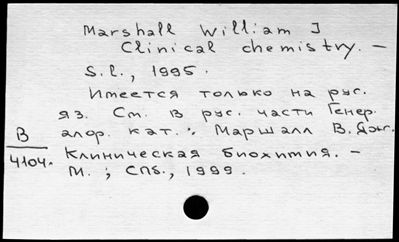 Marshall William J
Clinical chemistry. –
S.l., 1995.
Имеется только на рус.
яз. См. в рус. части Генер.
алф. кат.: Маршалл В. Дж.
Клиническая биохимия. –
М.; СПб., 1999.
В
4104.